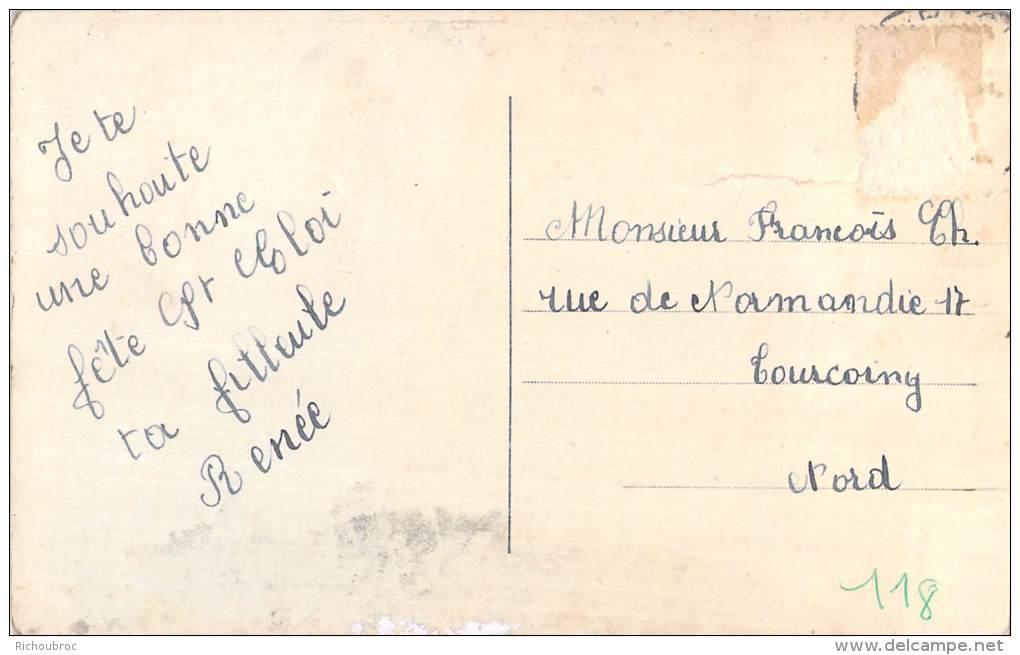 Je te
souhaite
une bonne
fête St Eloi
ta filleule
Renée
Monsieur François Th.
rue de Normandie 17
Tourcoing
Nord
118
Richoubroc
www.delcampe.net